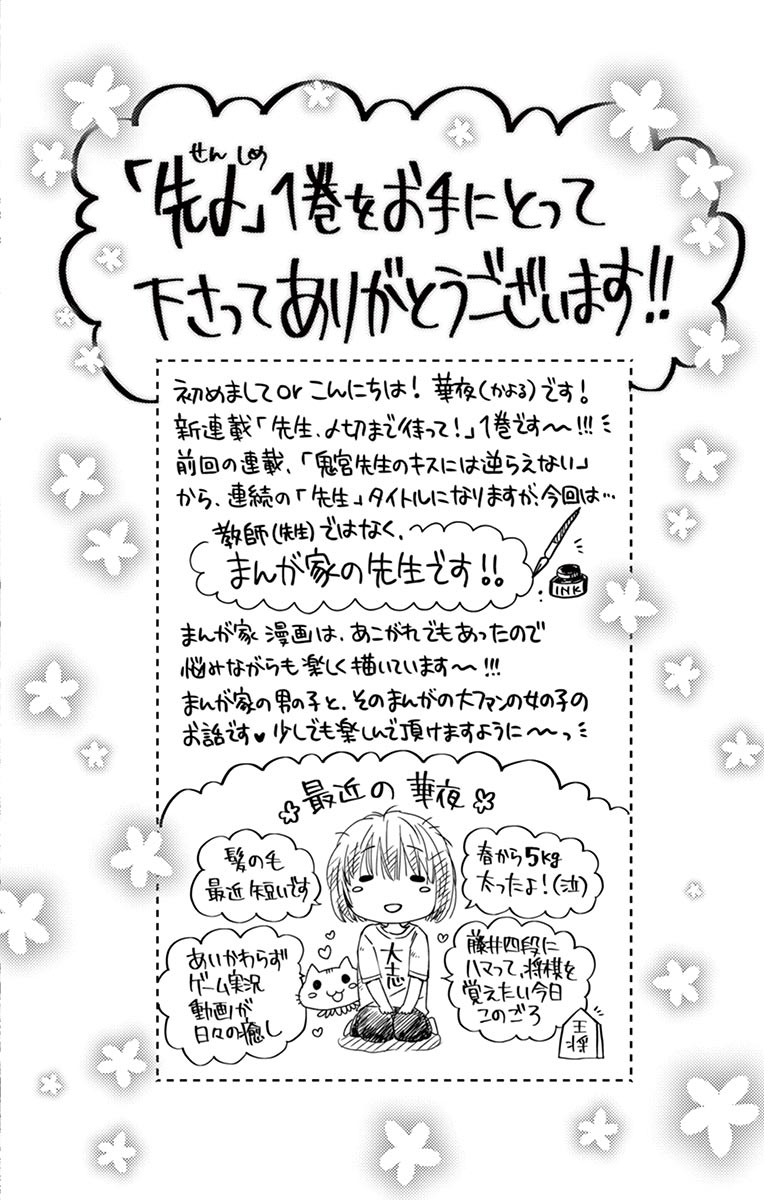 せん しめ
「先〆」1巻をお手にとって
下さってありがとうございます!!
初めましてorこんにちは! 華夜(かよる)です!
新連載「先生、〆切まで待って!」1巻です〜!!!
前回の連載、「鬼宮先生のキスには逆らえない」
から、連続の「先生」タイトルになりますが、今回は…
教師(先生)ではなく、
まんが家の先生です!!
INK
まんが家 漫画は、あこがれでもあったので
悩みながらも楽しく描いています〜!!!
まんが家の男の子と、そのまんがの大ファンの女の子の
お話です♥少しでも楽しんで頂けますように〜〜っ
最近の 華夜
髪の毛
最近短いです
春から5kg
太ったよ!(泣)
あいかわらず
ゲーム実況
動画が
日々の癒し
大志
藤井四段に
ハマって、将棋を
覚えたい今日
このごろ
王将